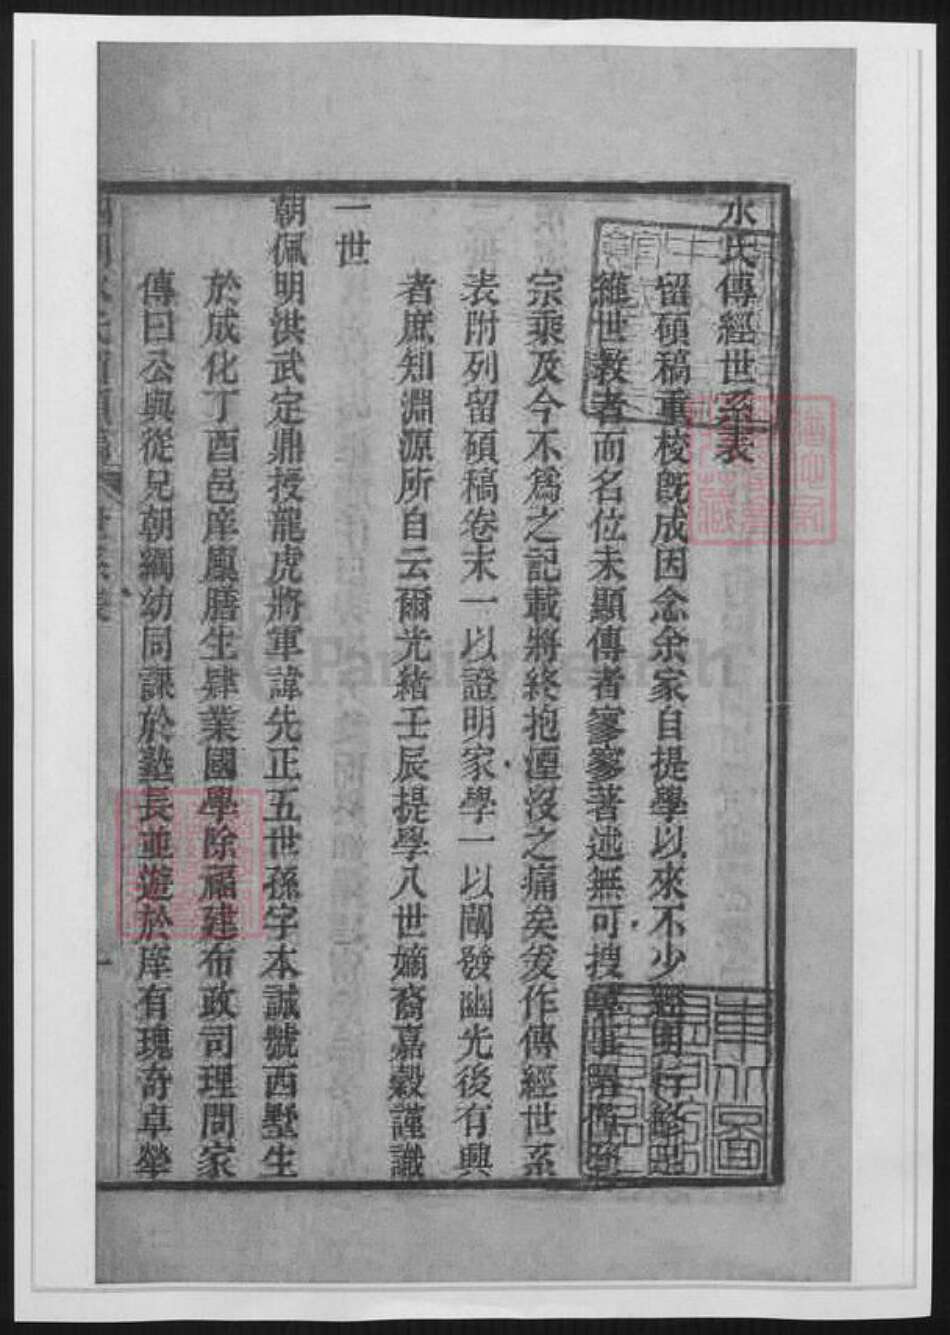 水氏傳經世系表
留碩稿重梭既成因念余家自提學以來不少經明行修品
維世教者而名位未顯傳者寥寥著述無可搜
宗乘及今不為之記載將終抱湮沒之痛矣爰作傳經世系
表附列留碩稿卷末一以證明家學一以闡發幽光後有興
者庶知淵源所自云爾光緒壬辰提學八世嫡裔嘉穀謹識
一世
朝佩明洪武定鼎授龍虎將軍諱先正五世孫字本誠號西墅生
於成化丁酉邑庠廩膳生肄業國學除福建布政司理問家
傳曰公與從兄朝綱幼同課於塾長並遊於庠有瑰奇卓犖